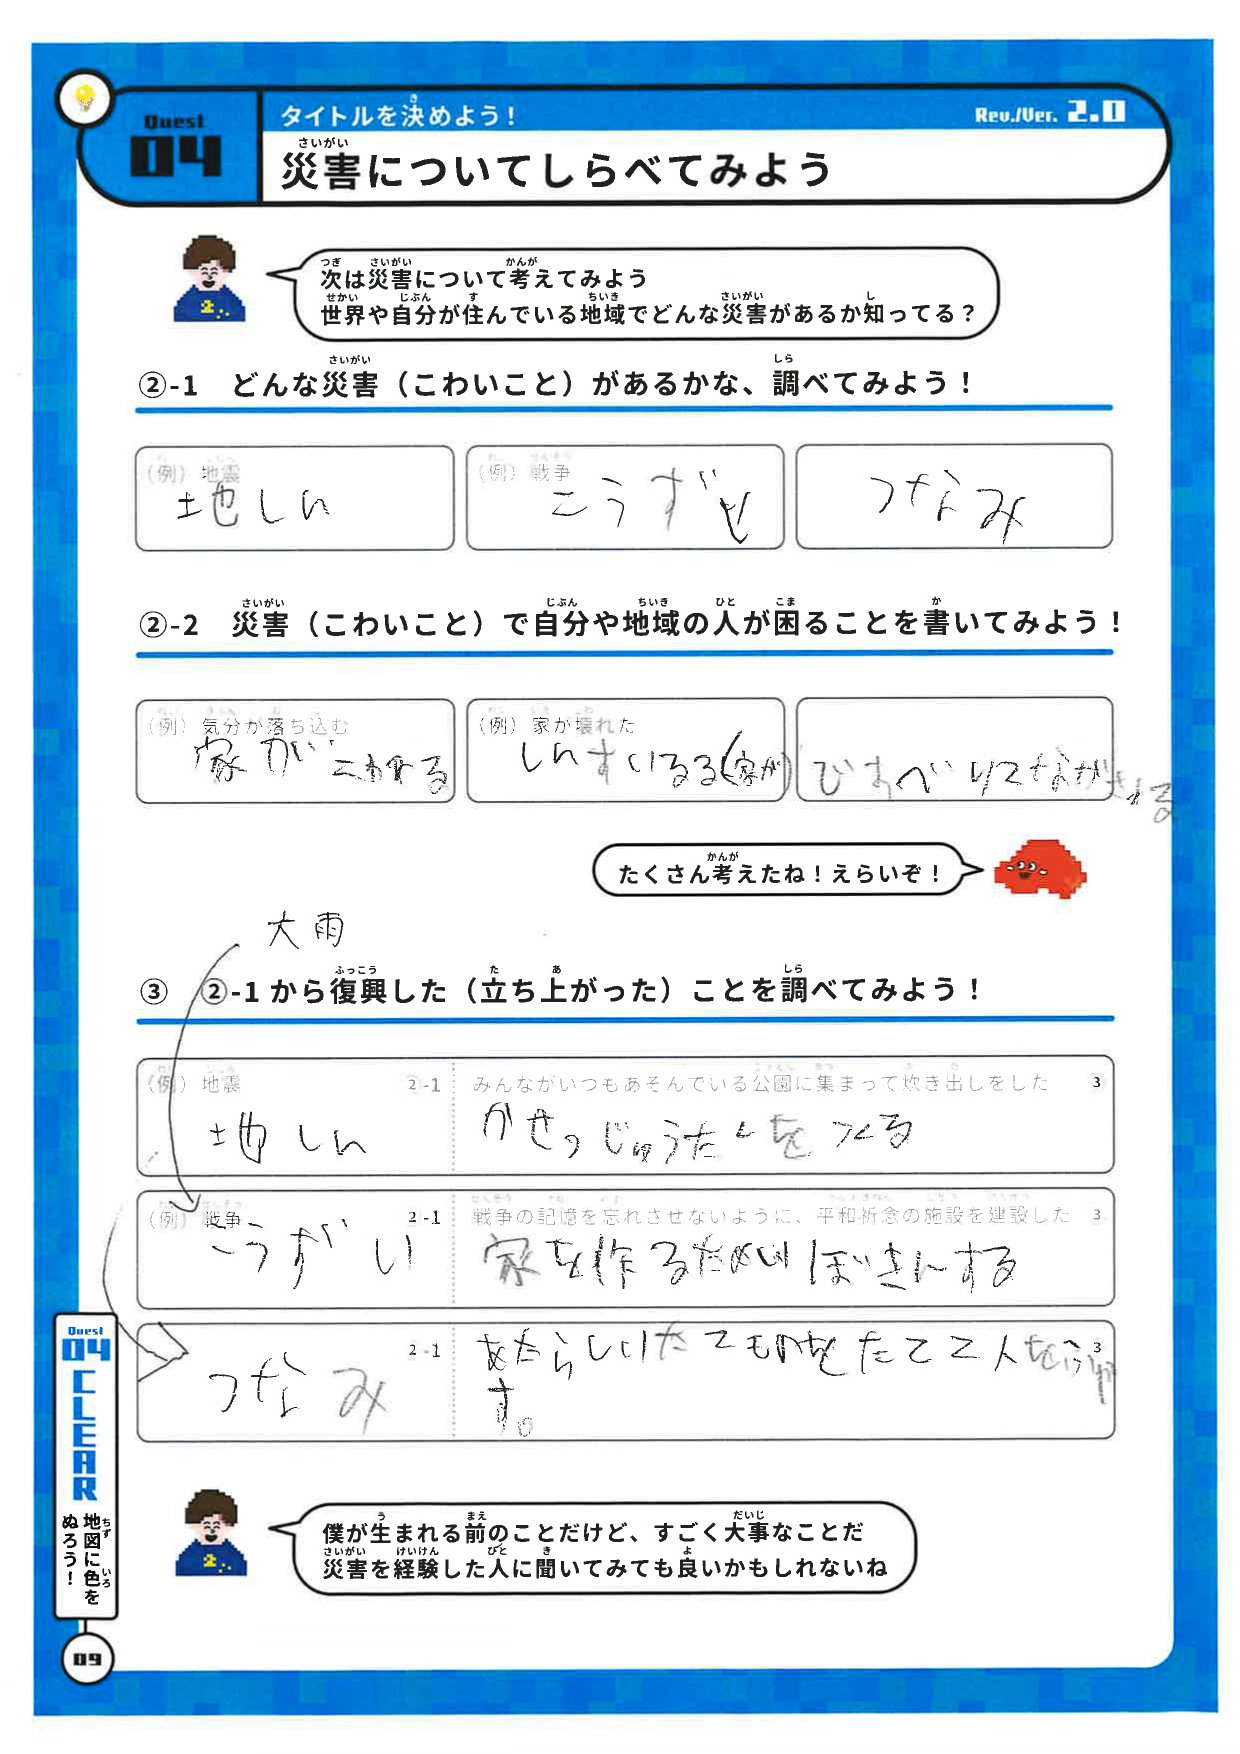 Quest
04
タイトルを決めよう！
Rev./Ver. 2.0
災害についてしらべてみよう
次は災害について考えてみよう
世界や自分が住んでいる地域でどんな災害があるか知ってる？
②-1 どんな災害（こわいこと）があるかな、調べてみよう！
（例）地震
地しん
（例）戦争
こうずい
つなみ
②-2 災害（こわいこと）で自分や地域の人が困ることを書いてみよう！
（例）気分が落ち込む
家がこわれる
（例）家が壊れた
しんすいする(家が)
たくさん考えたね！えらいぞ！
大雨
③ ②-1から復興した（立ち上がった）ことを調べてみよう！
（例）地震 2-1
みんながいつもあそんでいる公園に集まって炊き出しをした 3
地しん
かせつじゅうたくをつくる
（例）戦争 2-1
戦争の記憶を忘れさせないように、平和祈念の施設を建設した 3
こうずい
家を作るためにぼきんする
2-1
3
つなみ
あたらしいたてものをたてて人を
す。
Quest
04
CLEAR
地図に色を
ぬろう！
僕が生まれる前のことだけど、すごく大事なことだ
災害を経験した人に聞いてみても良いかもしれないね
09